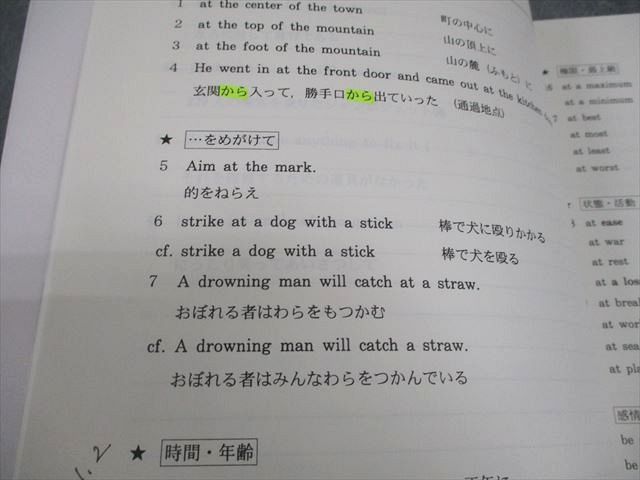 1 at the center of the town 町の中心に
2 at the top of the mountain 山の頂上に
3 at the foot of the mountain 山の麓（ふもと）に
4 He went in at the front door and came out at the kitchen
玄関から入って，勝手口から出ていった （通過地点）
★ …をめがけて
5 Aim at the mark.
的をねらえ
6 strike at a dog with a stick 棒で犬に殴りかかる
cf. strike a dog with a stick 棒で犬を殴る
7 A drowning man will catch at a straw.
おぼれる者はわらをもつかむ
cf. A drowning man will catch a straw.
おぼれる者はみんなわらをつかんでいる
1.2
★ 時間・年齢
★ 極限・最上級
at a maximum
at a minimum
at best
at most
at least
at worst
状態・活動
at ease
at war
at rest
at a
at
at
at
at
感情
be
be